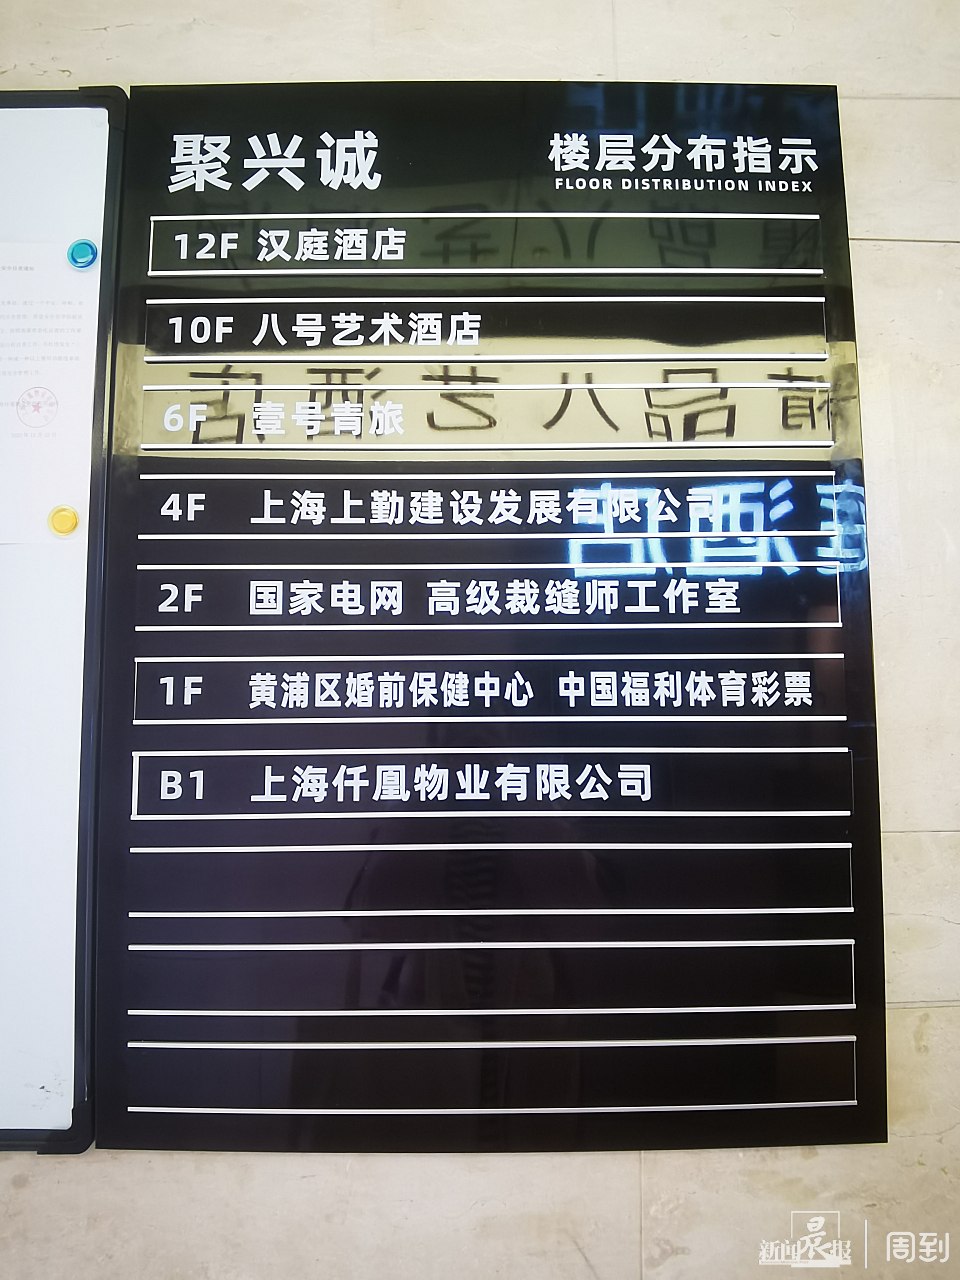 聚兴诚
楼层分布指示
FLOOR DISTRIBUTION INDEX
12F 汉庭酒店
10F 八号艺术酒店
6F 壹号青旅
4F 上海上勤建设发展有限公司
2F 国家电网 高级裁缝师工作室
1F 黄浦区婚前保健中心 中国福利体育彩票
B1 上海仟凰物业有限公司
新闻晨报 周到